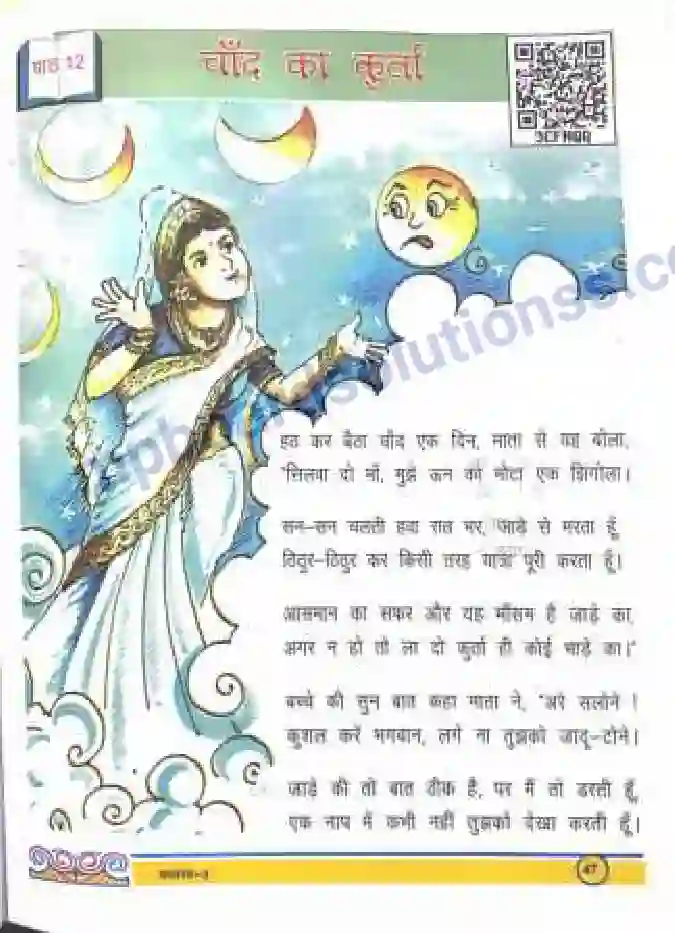 पाठ 12
चाँद का कुर्ता
हठ कर बैठा चाँद एक दिन, माता से यह बोला,
"सिलवा दो माँ, मुझे ऊन का मोटा एक झिंगोला।
सन-सन चलती हवा रात भर, जाड़े से मरता हूँ,
ठिठुर-ठिठुर कर किसी तरह यात्रा पूरी करता हूँ।
आसमान का सफर और यह मौसम है जाड़े का,
अगर न हो तो ला दो कुर्ता ही कोई भाड़े का।"
बच्चे की सुन बात कहा माता ने, "अरे सलोने !
कुशल करें भगवान, लगें ना तुझको जादू-टोने।
जाड़े की तो बात ठीक है, पर मैं तो डरती हूँ,
एक नाप में कभी नहीं तुझको देखा करती हूँ।
47